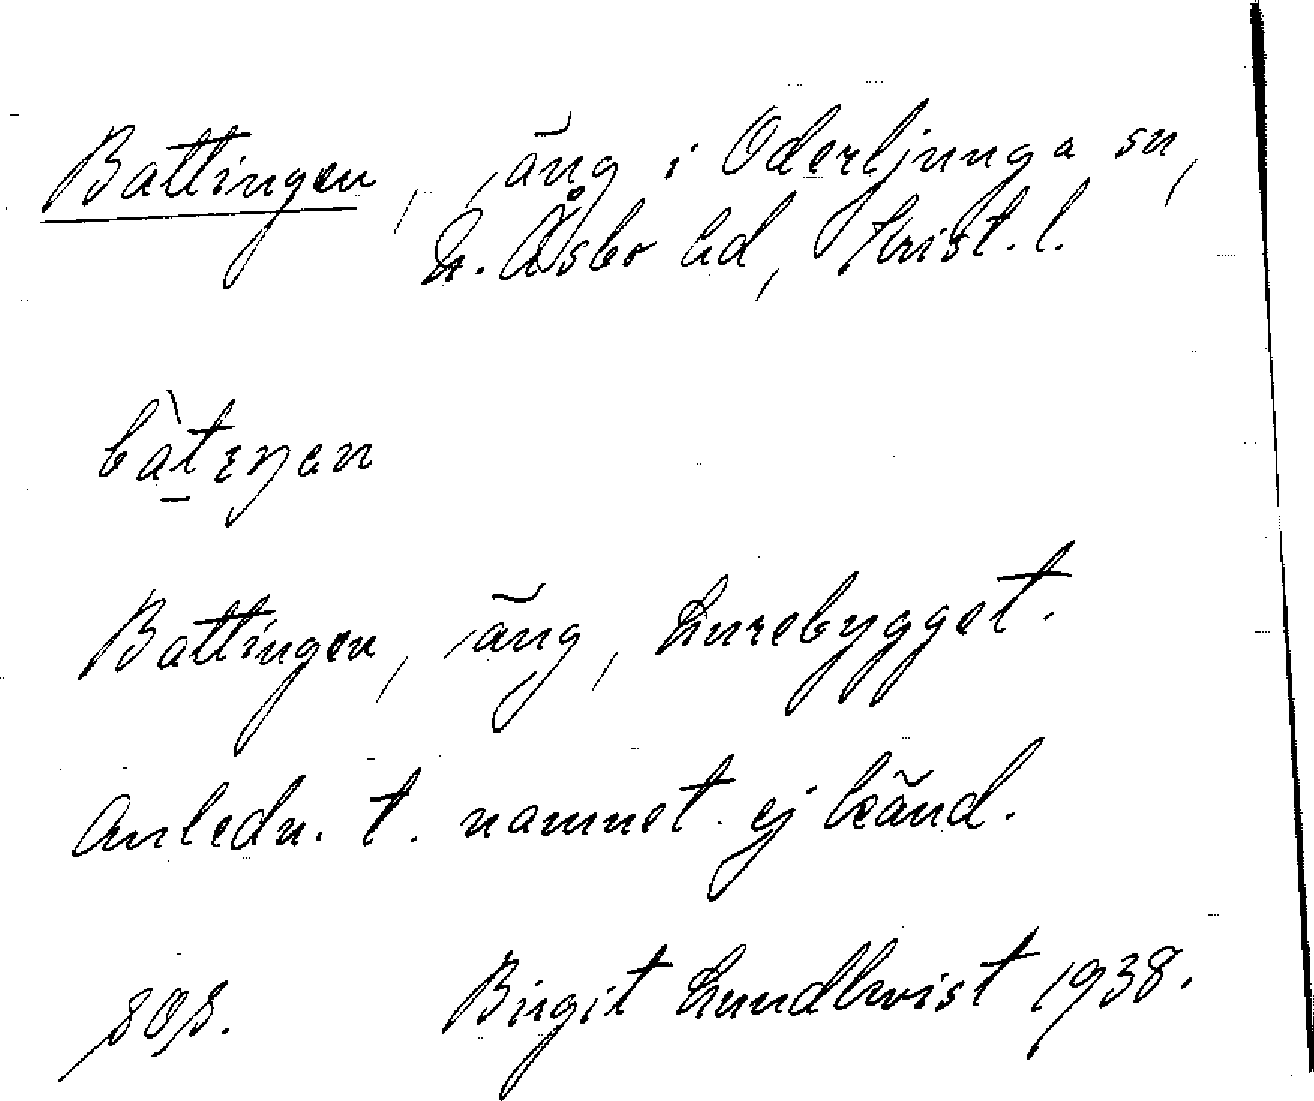 Battingen, äng i Oderljunga sn,
N. Åsbo hd, Krist. l.
bàt̲ɛŋən
Battingen, äng, Lurebygget.
Anledn. t. namnet ej känd.
Birgit Lundkvist 1938.